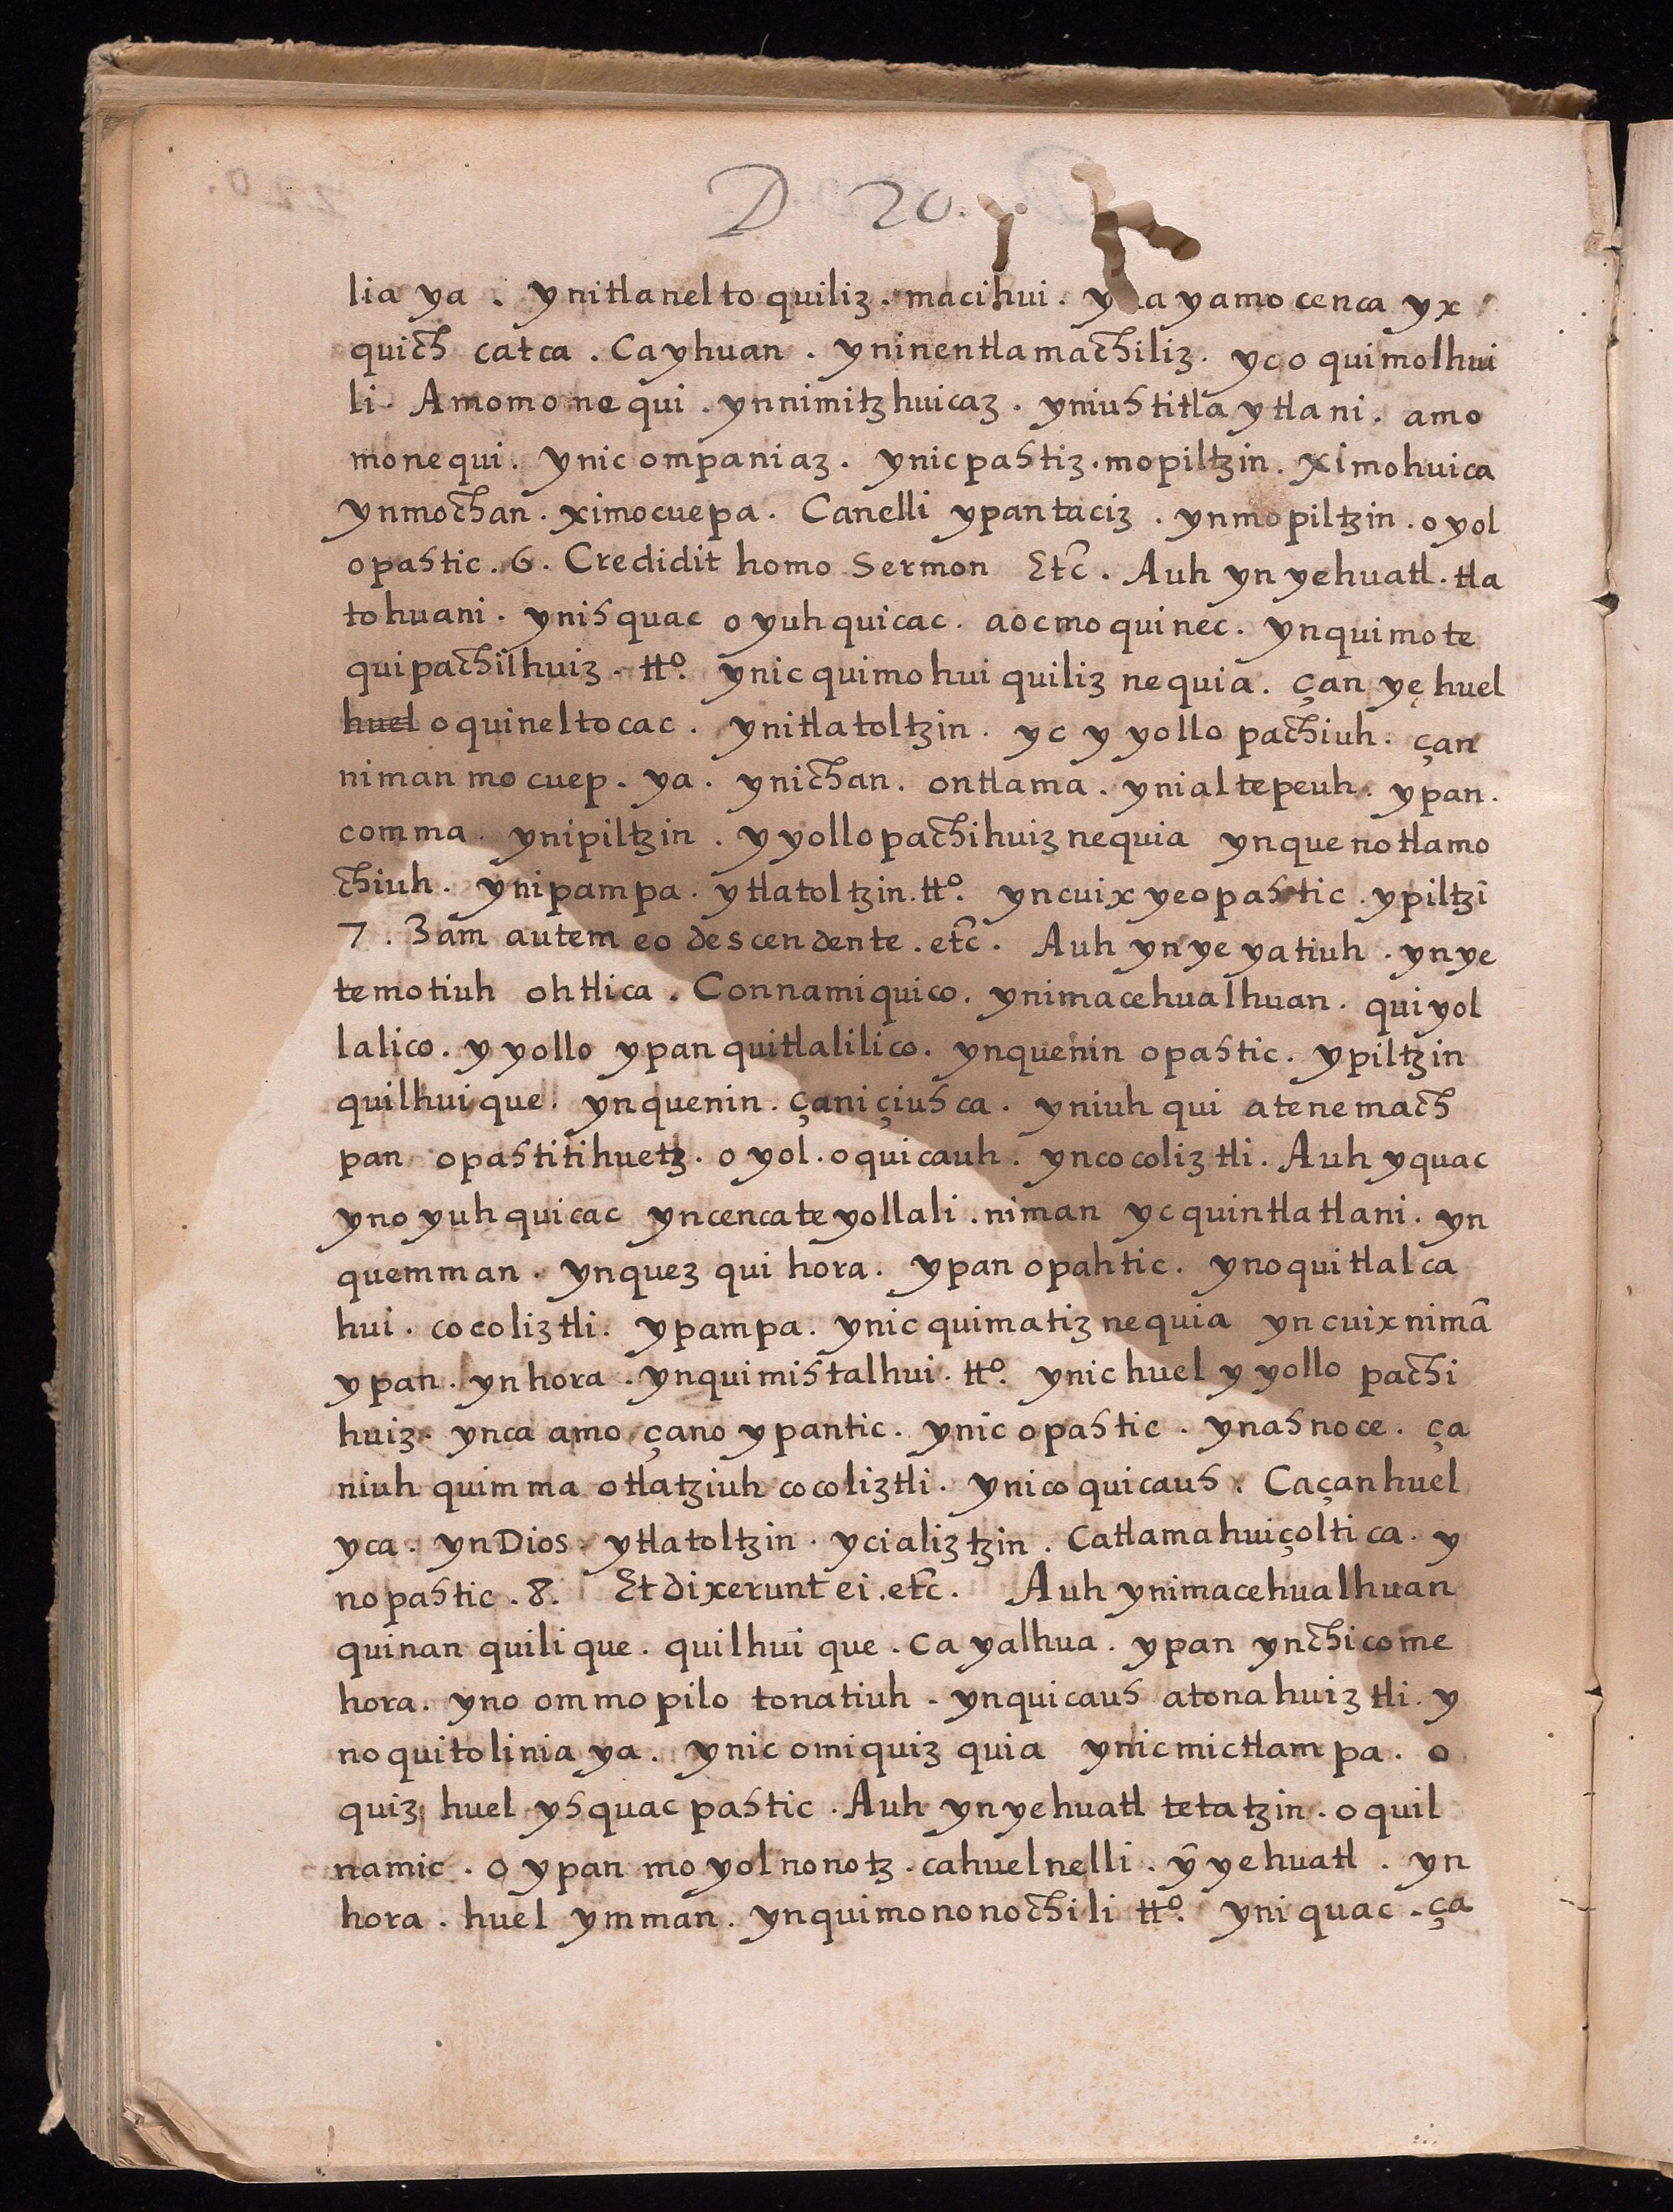 D 20. p
lia ya . ynitlanelto quiliz . macihui . y a yamo cenca yx
quich catca . Ca yhuan . yninentlamachiliz . yc o quimolhui
li . Amomonequi . ynnimitzhuicaz . yniustitla ytlani . amo
monequi . ynic ompaniaz . ynicpastiz . mopiltzin . ximohuica
ynmochan . ximocuepa . Canelli ypantaciz . ynmopiltzin . o yol
opastic . 6 . Credidit homo Sermon Etc̃ . Auh yn yehuatl . tla
tohuani . ynisquac o yuhquicac . aocmo quinec . ynquimote
quipachilhuiz . tt⁰. ynic quimohui quiliz nequia . çan yę huel
huel o quineltocac . ynitlatoltzin . yc y yollo pachiuh . çan
niman mo cuep . ya . ynichan . ontlama . ynialtepeuh . ypan .
comma . ynipiltzin . y yollo pachihuiz nequia ynque notlamo
chiuh . ynipampa . ytlatoltzin . tt⁰. yncuix yeopastic . ypiltzĩ
7 . Iam autem eo descendente . etc̃ . Auh yn ye yatiuh . yn ye
temotiuh ohtlica . Connamiquico . ynimacehualhuan . quiyol
lalico . y yollo ypan quitlalilico . ynquenin opastic . ypiltzin
quilhuique . ynquenin . çaniçiusca . yniuh qui atenemach
pan opastitihuetz . o yol . o quicauh . yncocoliztli . Auh yquac
yno yuh quicac yncencateyollali . niman yc quintlatlani . yn
quemman . ynquez qui hora . ypan opahtic . ynoquitlalca
hui . cocoliztli . ypampa . ynic quimatiz nequia yn cuix nimã
ypan . ynhora . ynquimistalhui . tt⁰. ynic huel y yollo pachi
huiz . ynca amo çano ypantic . ynic opastic . ynasnoce . ça
niuh quimma otlatziuh cocoliztli . ynico quicaus . Caçanhuel
yca . ynDios . ytlatoltzin . ycializtzin . Catlamahuiçoltica . y
nopastic . 8 . Et dixerunt ei . etc̃ . Auh ynimacehualhuan
quinan quilique . quilhui que . Ca yalhua . ypan ynchicome
hora . yno ommopilo tonatiuh . ynquicaus atonahuiztli . y
noquitolinia ya . ynic omiquiz quia ynicmictlampa . o
quiz huel ysquac pastic . Auh ynyehuatl tetatzin . o quil
namic . o ypan moyolnonotz . cahuelnelli . ỹ yehuatl . yn
hora . huel ymman . ynquimononochili tt⁰. yniquac . ça